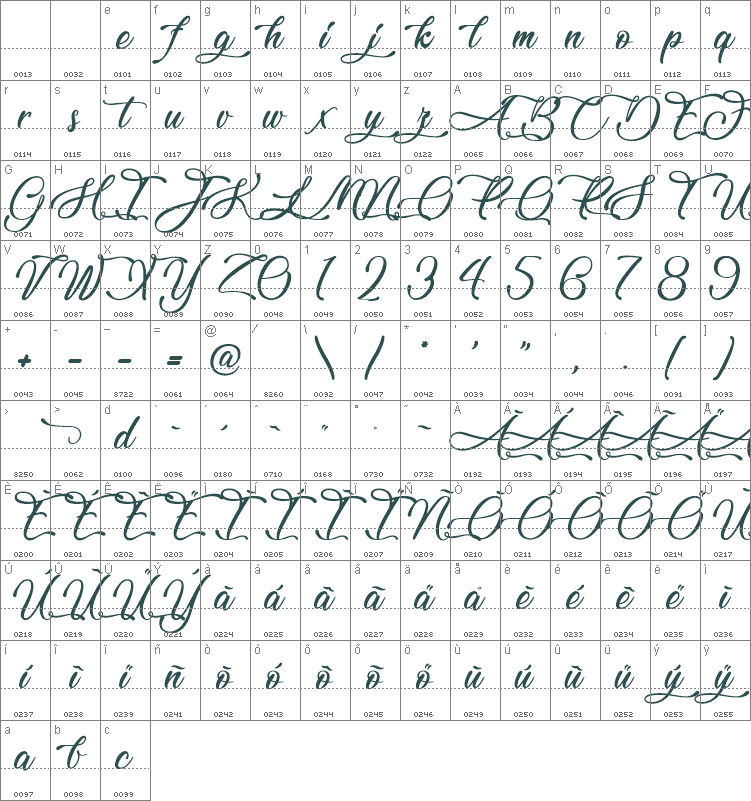 e f g h i j k l m n o p q
e f g h i j k l m n o p q
0013 0032 0101 0102 0103 0104 0105 0106 0107 0108 0109 0110 0111 0112 0113
r s t u v w x y z A B C D E F
r s t u v w x y z A B C D E F
0114 0115 0116 0117 0118 0119 0120 0121 0122 0065 0066 0067 0068 0069 0070
G H I J K L M N O P Q R S T U
G H I J K L M N O P Q R S T U
0071 0072 0073 0074 0075 0076 0077 0078 0079 0080 0081 0082 0083 0084 0085
V W X Y Z 0 1 2 3 4 5 6 7 8 9
V W X Y Z 0 1 2 3 4 5 6 7 8 9
0086 0087 0088 0089 0090 0048 0049 0050 0051 0052 0053 0054 0055 0056 0057
+ - − = @ ⁄ \ / * ' " , . [ ]
+ - − = @ \ / * ' " , . ( )
0043 0045 8722 0061 0064 8260 0092 0047 0042 0039 0034 0044 0046 0091 0093
› > d ` ´ ˆ ¨ ˚ ˜ À Á Â Ã Ä Å
d ` ´ ˆ ¨ ˚ ˜ À Á Â Ã Ä Å
8250 0062 0100 0096 0180 0710 0168 0730 0732 0192 0193 0194 0195 0196 0197
È É Ê Ë Ì Í Î Ï Ñ Ò Ó Ô Õ Ö Ù
È É Ê Ë Ì Í Î Ï Ñ Ò Ó Ô Õ Ö Ù
0200 0201 0202 0203 0204 0205 0206 0207 0209 0210 0211 0212 0213 0214 0217
Ú Û Ü Ý à á â ã ä å è é ê ë ì
Ú Û Ü Ý à á â ã ä å è é ê ë ì
0218 0219 0220 0221 0224 0225 0226 0227 0228 0229 0232 0233 0234 0235 0236
í î ï ñ ò ó ô õ ö ù ú û ü ý ÿ
í î ï ñ ò ó ô õ ö ù ú û ü ý ÿ
0237 0238 0239 0241 0242 0243 0244 0245 0246 0249 0250 0251 0252 0253 0255
a b c
a b c
0097 0098 0099